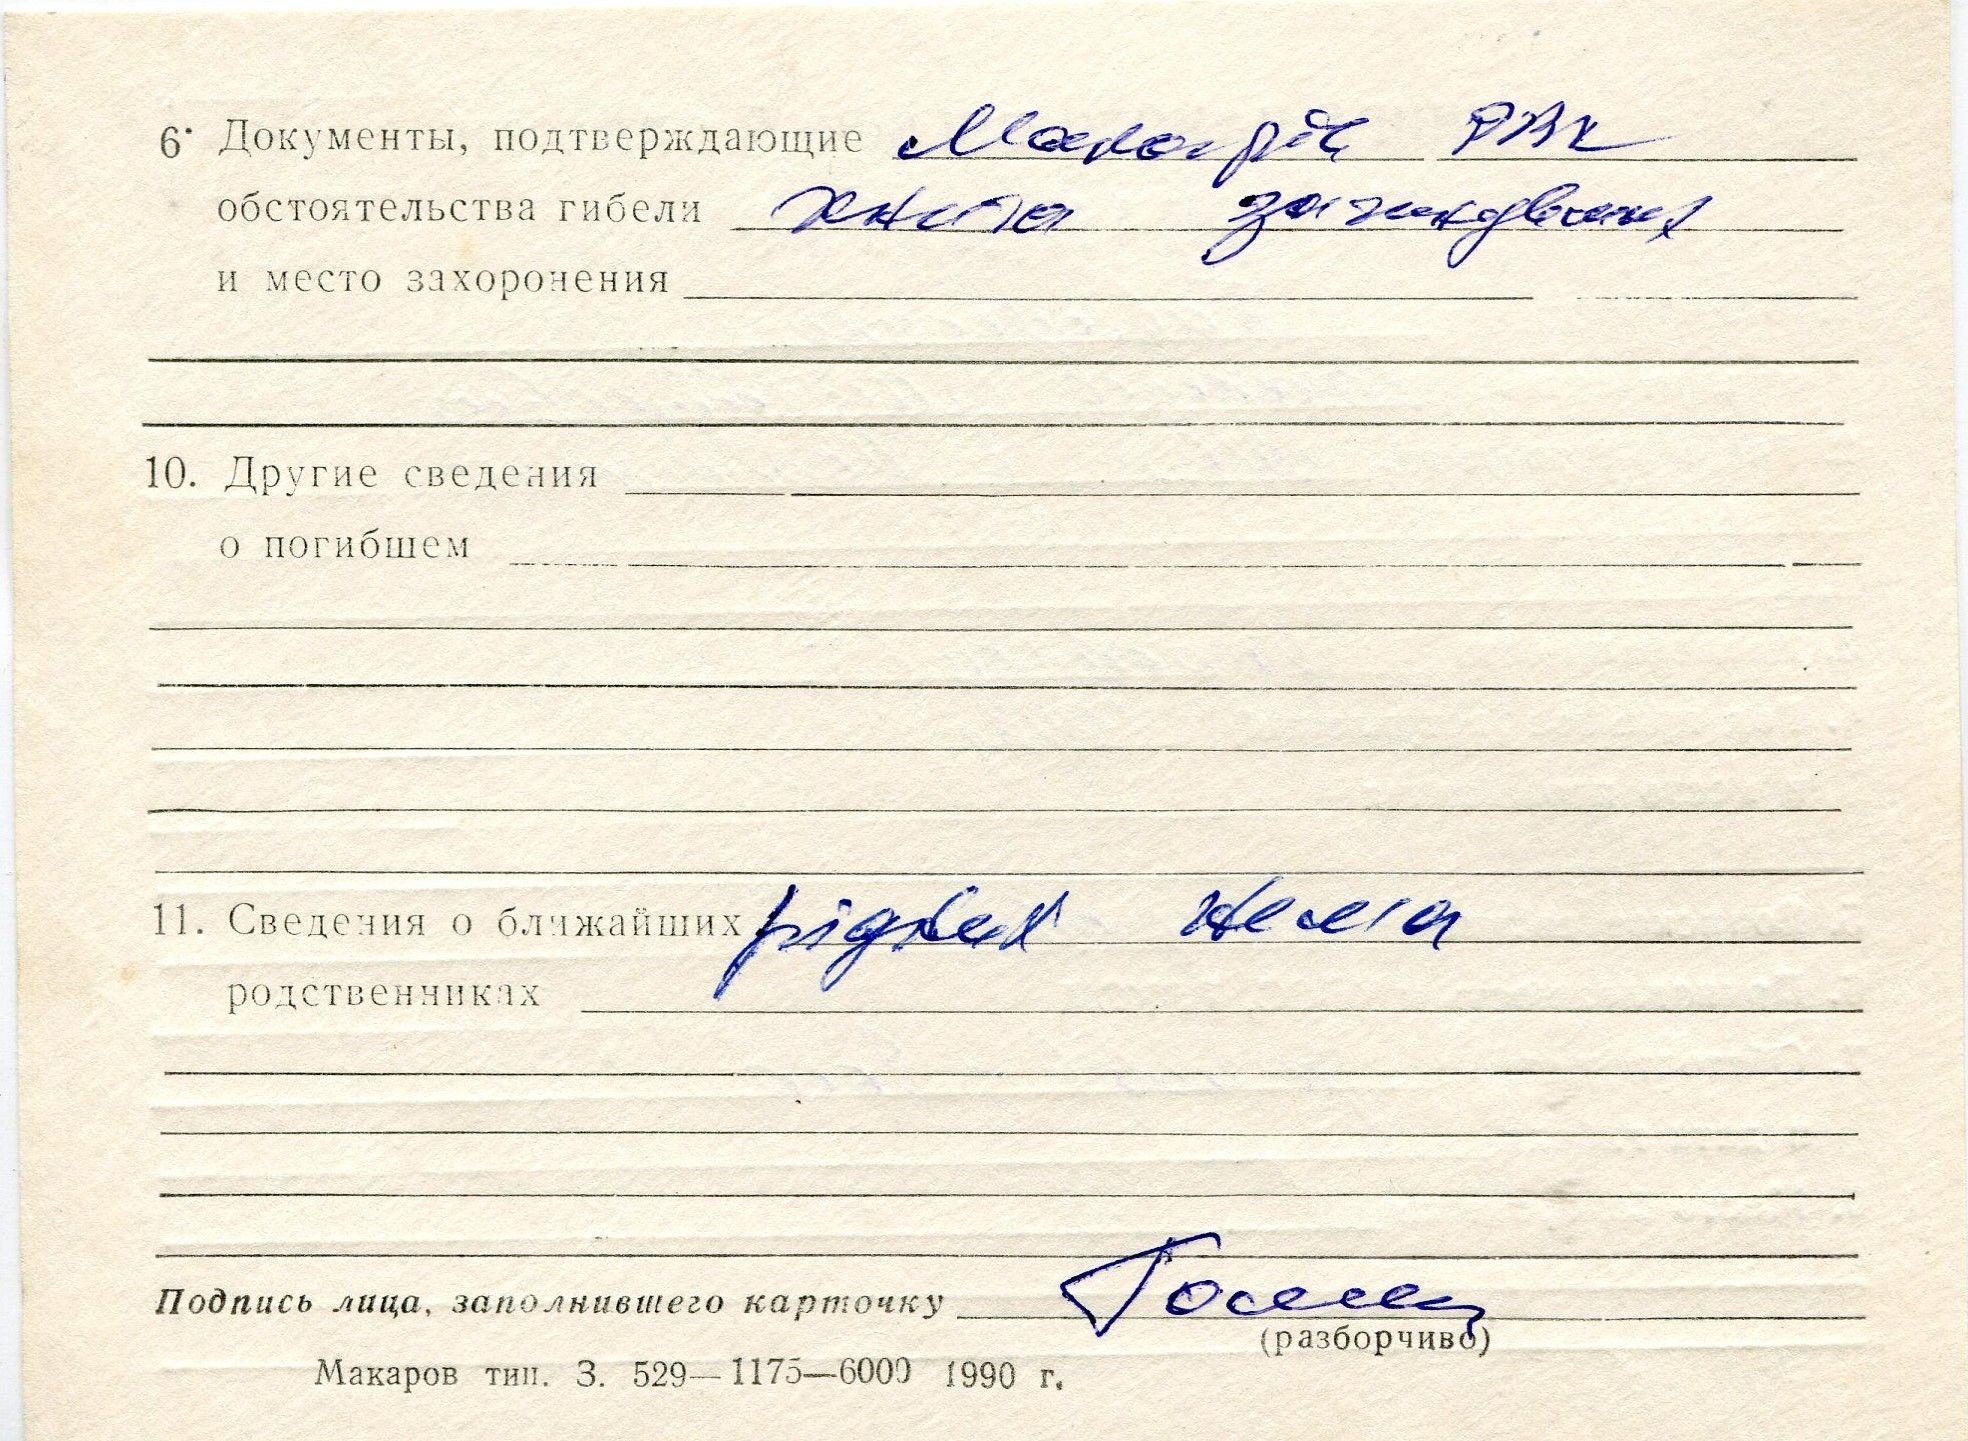 6. Документы, подтверждающие Макарів РВК
обстоятельства гибели книга
и место захоронения
10. Другие сведения
о погибшем
11. Сведения о ближайших рідних нема
родственниках
Подпись лица, заполнившего карточку
(разборчиво)
Макаров тип. З. 529—1175—6000 1990 г.